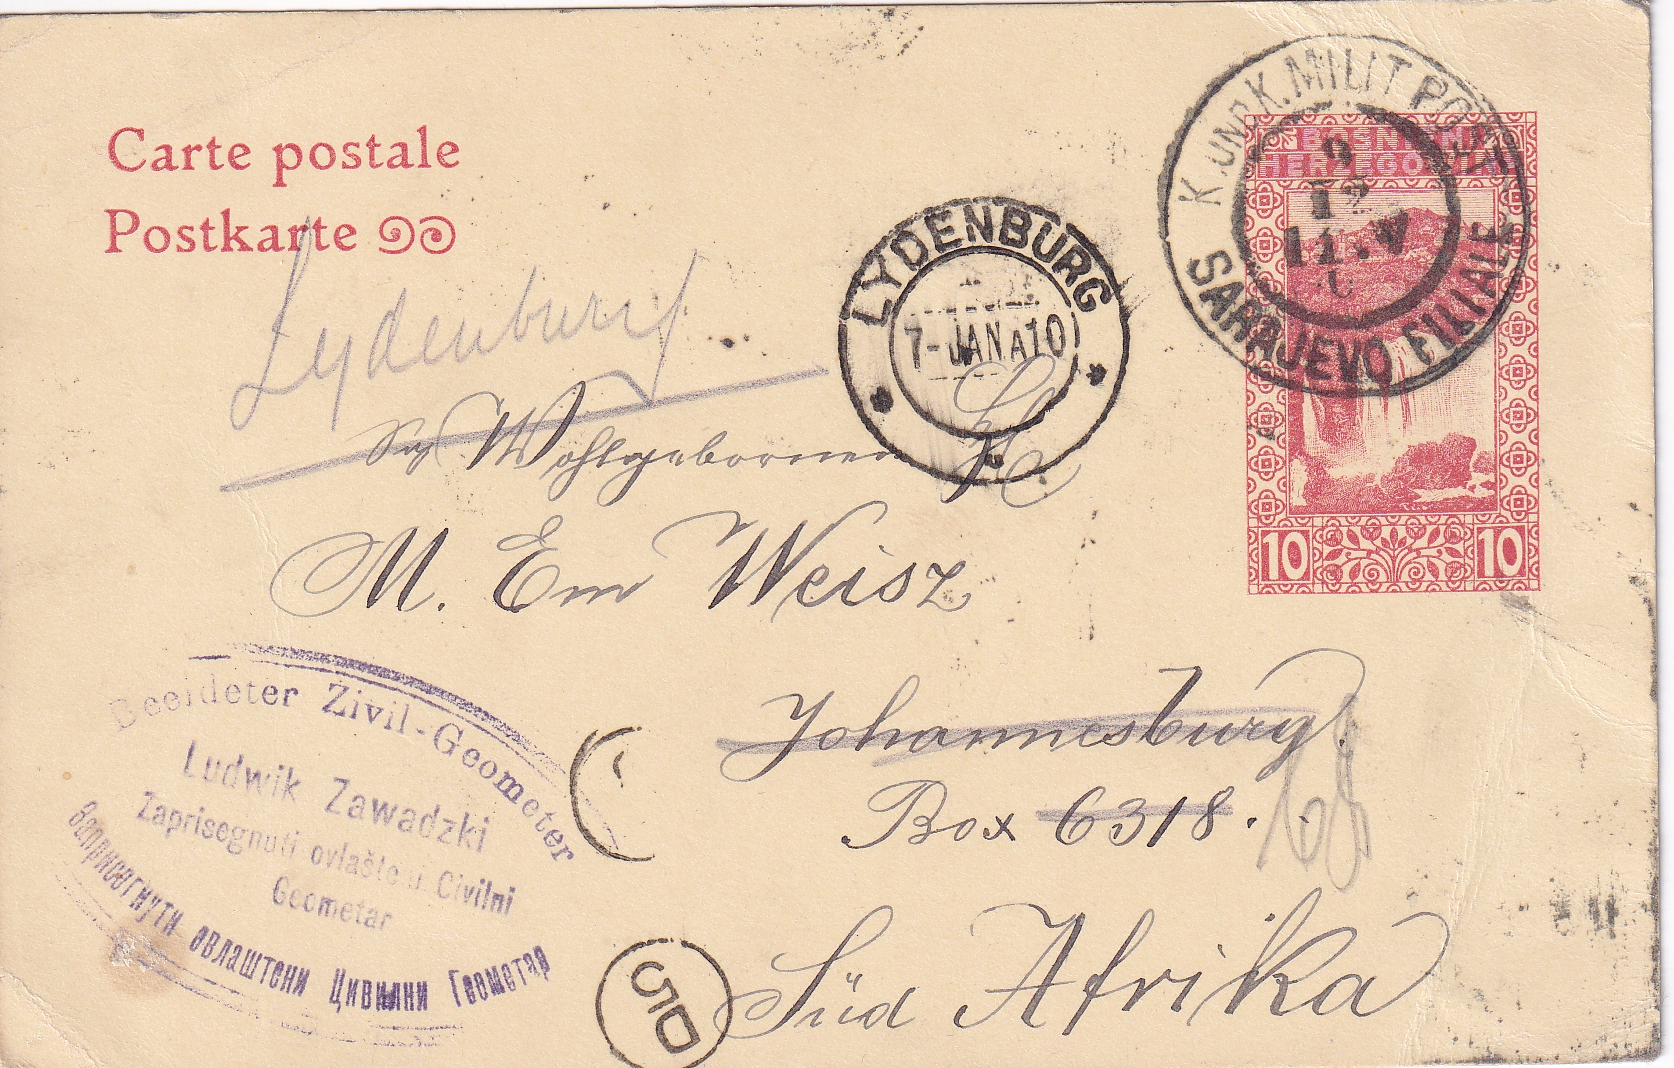 Carte postale
Postkarte
K. UND K. MILIT. POST
SARAJEVO FILIALE
BOSNIEN
HERCEGOVINA
10 10
LYDENBURG
7-JAN A10
Lydenburg
Sr Wohlgeboren
M. Em Weisz
Johannesburg.
Box 6318.
68
Süd Afrika
Beeideter Zivil-Geometer
Ludwik Zawadzki
Zaprisegnuti ovlašteni Civilni
Geometar
Заприсегнути овлаштени Цивилни Геометар